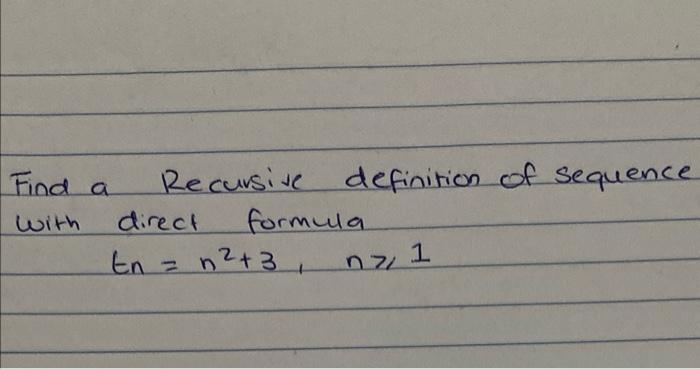 Find a Recursive definition of sequence
with direct formula
tn = n²+3, n⩾1